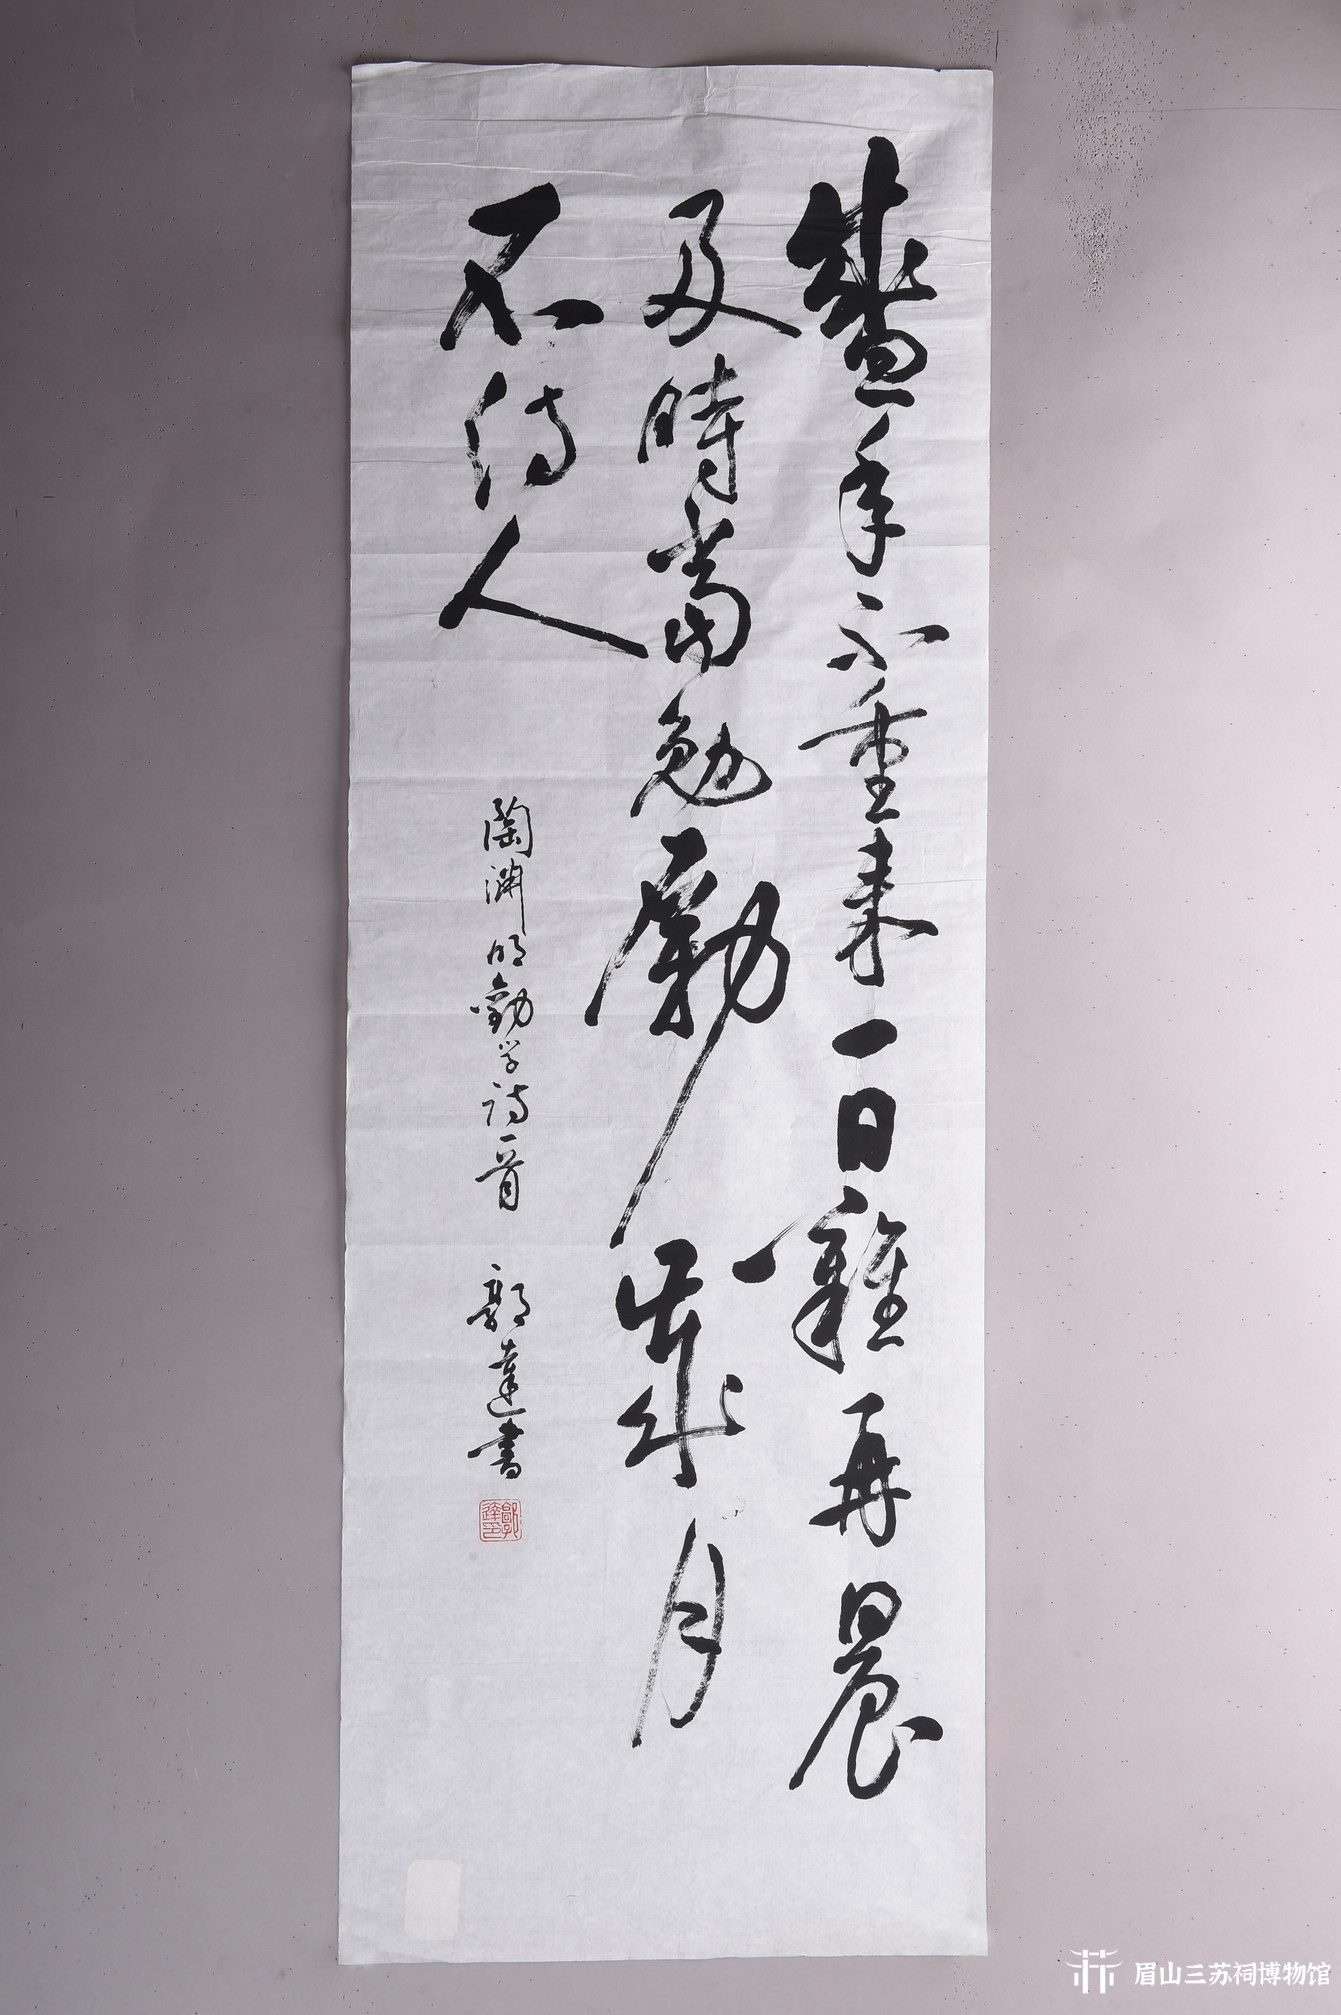 盛年不重来一日難再晨
及時當勉勵歲月
不待人
陶渊明勸学詩一首 郭達書
郭達印
眉山三苏祠博物馆